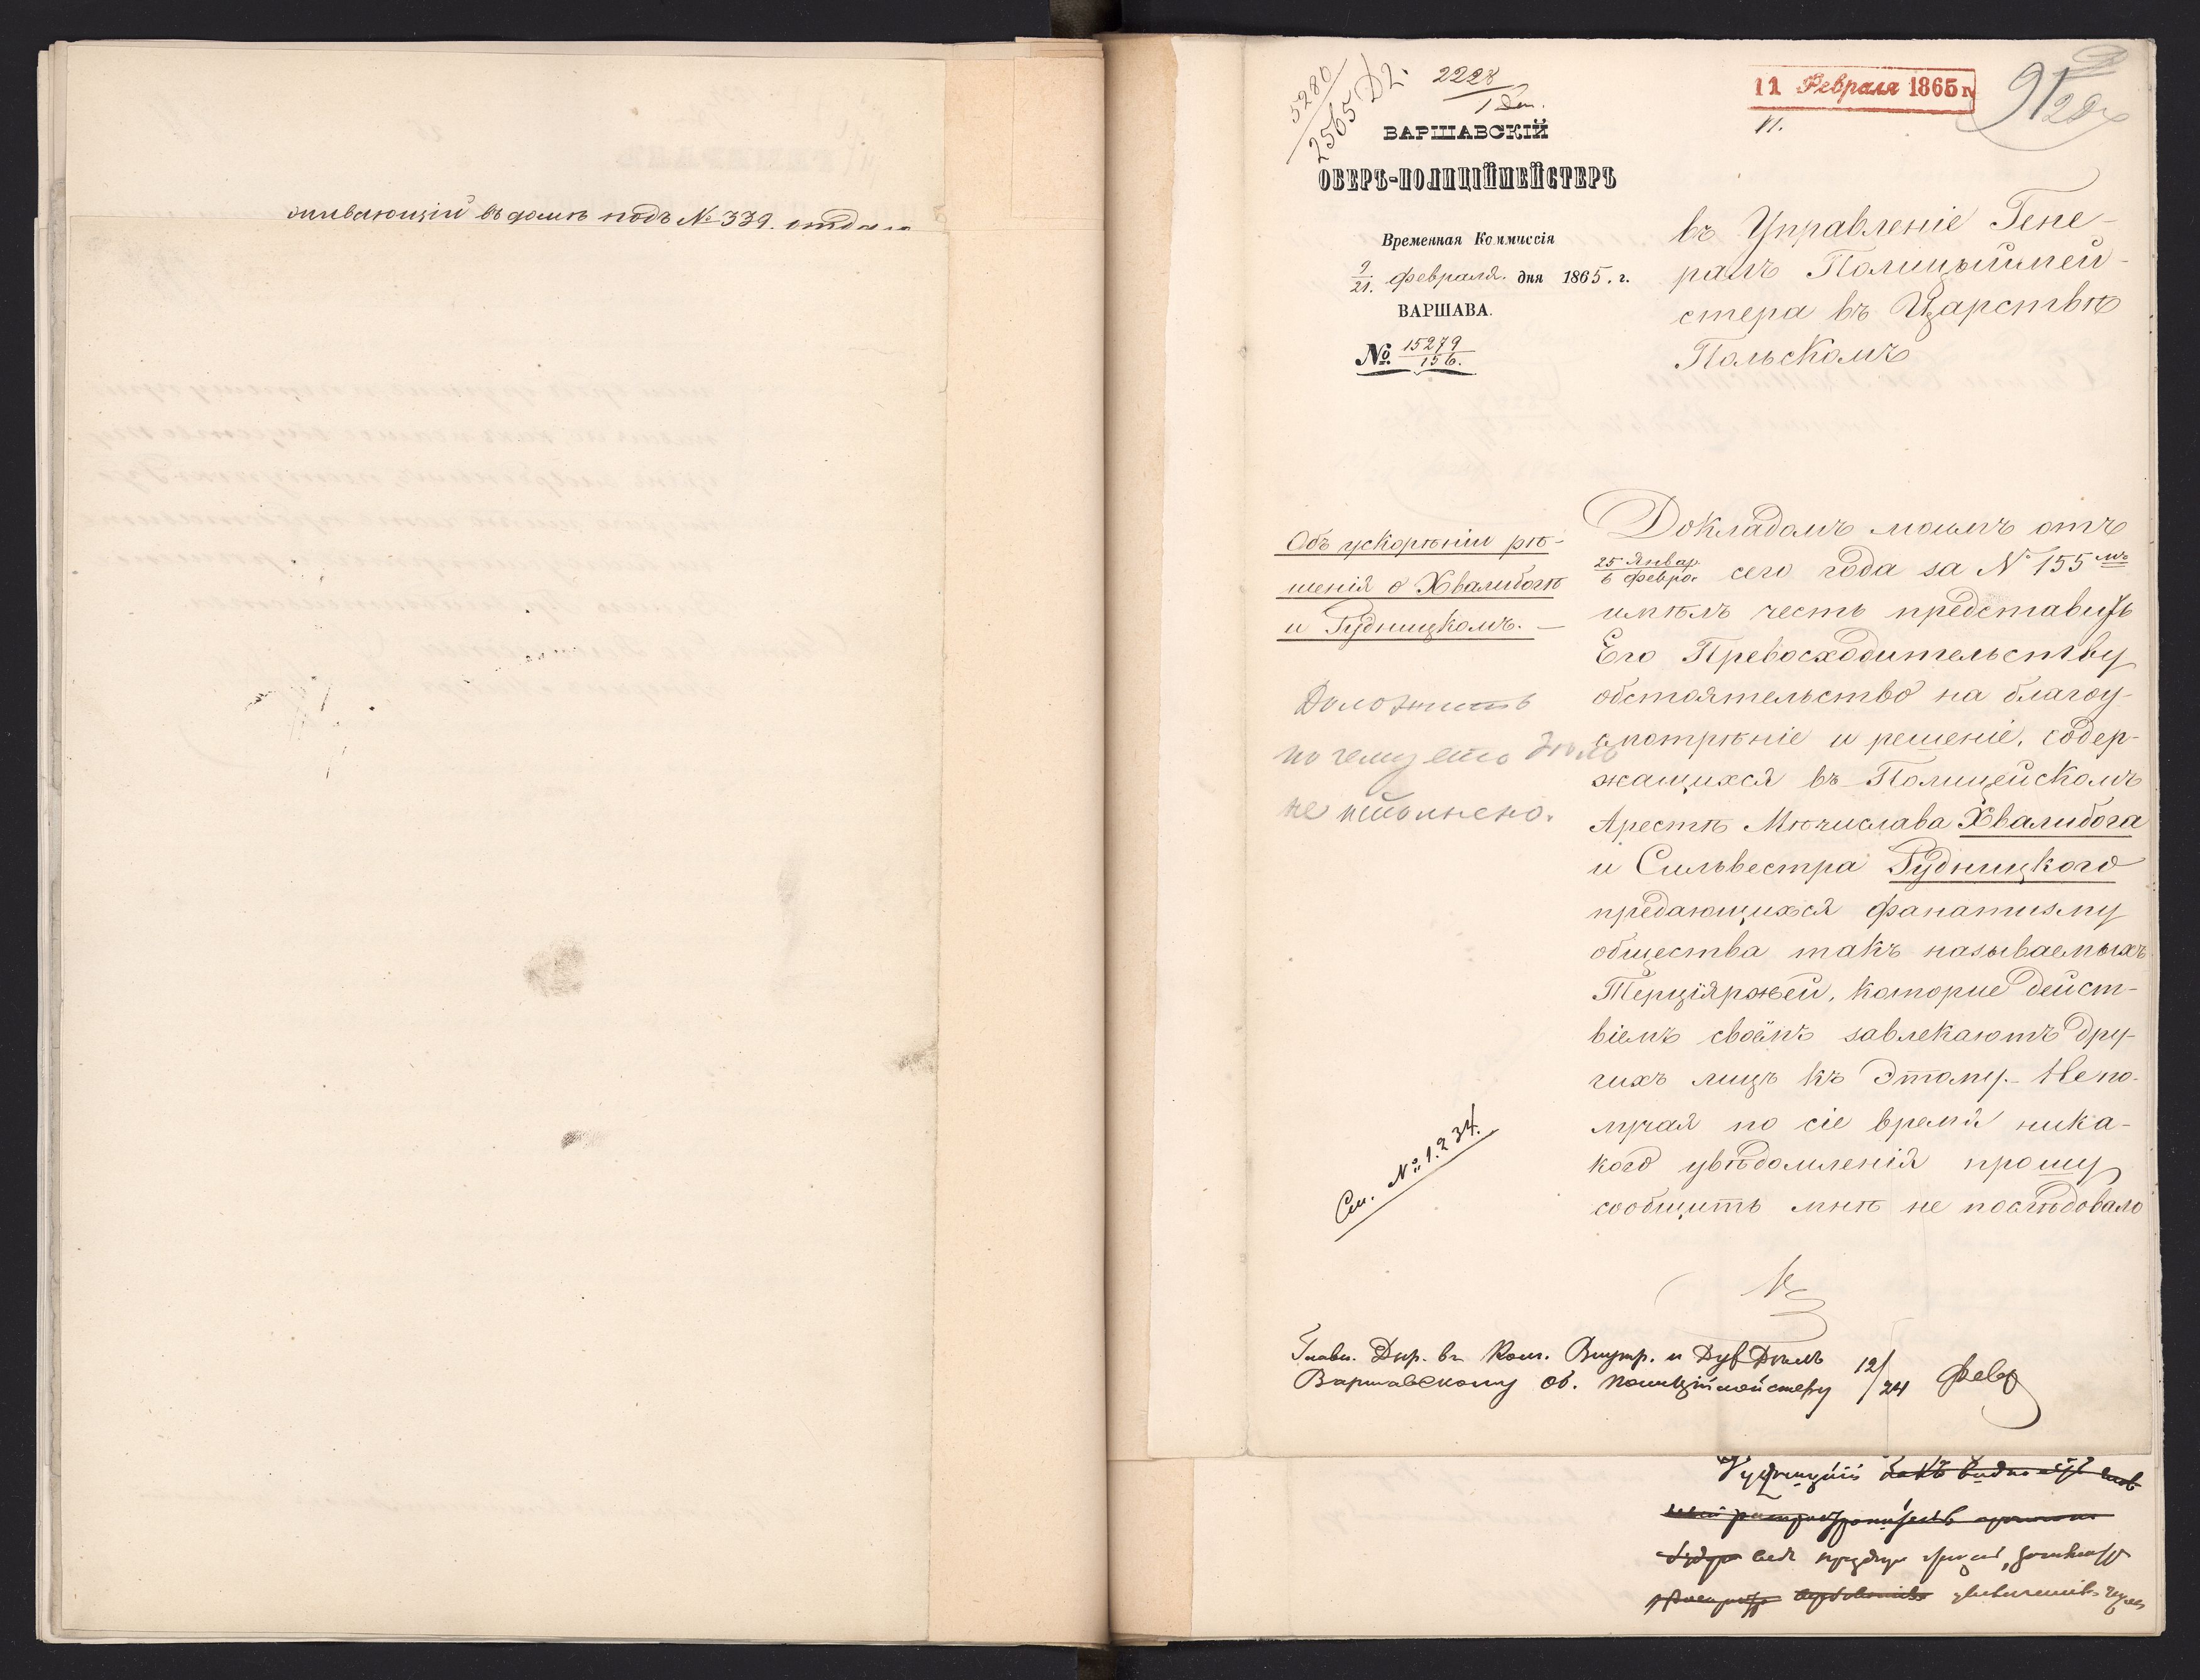 оживающій въ домѣ подъ № 339. отдала
5280
2565 Д2.
2228
1 Дѣл.
11 Февраля 1865 г.
91
ВАРШАВСКІЙ
ОБЕРЪ-ПОЛИЦІЙМЕЙСТЕРЪ
Временная Коммиссія
9/21. Февраля. дня 1865. г.
ВАРШАВА.
№ 15279/156.
въ Управленіе Гене-
ралъ Полицыймей-
стера въ Царствѣ
Польскомъ
Объ ускореніи рѣ-
шенія о Хвалибогѣ
и Рудницкомъ. —
Доложить
почему ето дѣло
не исполнено.
Докладомъ моимъ отъ
25 Январ./6 Февра. сего года за № 155 мъ
имѣлъ честь представить
Его Превосходительству
обстоятельство на благоу-
смотрѣніе и решеніе, содер-
жащихся въ Полицейскомъ
Арестѣ Мѣчислава Хвалибога
и Сильвестра Рудницкого
предающихся фанатизму
общества такъ называемыхъ
Терціяржей, которие дейст-
віемъ своимъ завлекаютъ дру-
гихъ лицъ къ этому. — Не по-
лучая по сіе время ника-
кого увѣдомленія прошу
сообщить мнѣ не послѣдовало
См. № 1.234.
Главн. Дир. въ Ком. Внутр. и Дух Дѣлъ
Варшавскому Об. полиціймейстеру 12/24 Февр
Рудницкій